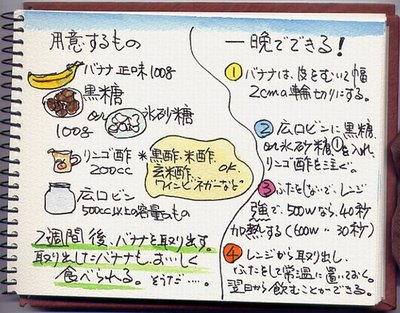 用意するもの
バナナ正味100g
黒糖
or 氷砂糖
100g
リンゴ酢
200cc
*黒酢、米酢、
玄米酢、OK
ワインビネガーなど
広口ビン
500cc以上の容量のもの
2週間後、バナナを取り出す。
取り出したバナナも、おいしく
食べられる。そうだ……。
一晩でできる!
① バナナは、皮をむいて幅
2cmの輪切りにする。
② 広口ビンに黒糖
or氷砂糖①を入れ、
リンゴ酢を注ぐ。
③ ふたをしないで、レンジ
強で、500Wなら、40秒
加熱する(600W・・30秒)
④ レンジから取り出し、
ふたをして常温に置いておく。
翌日から飲むことができる。